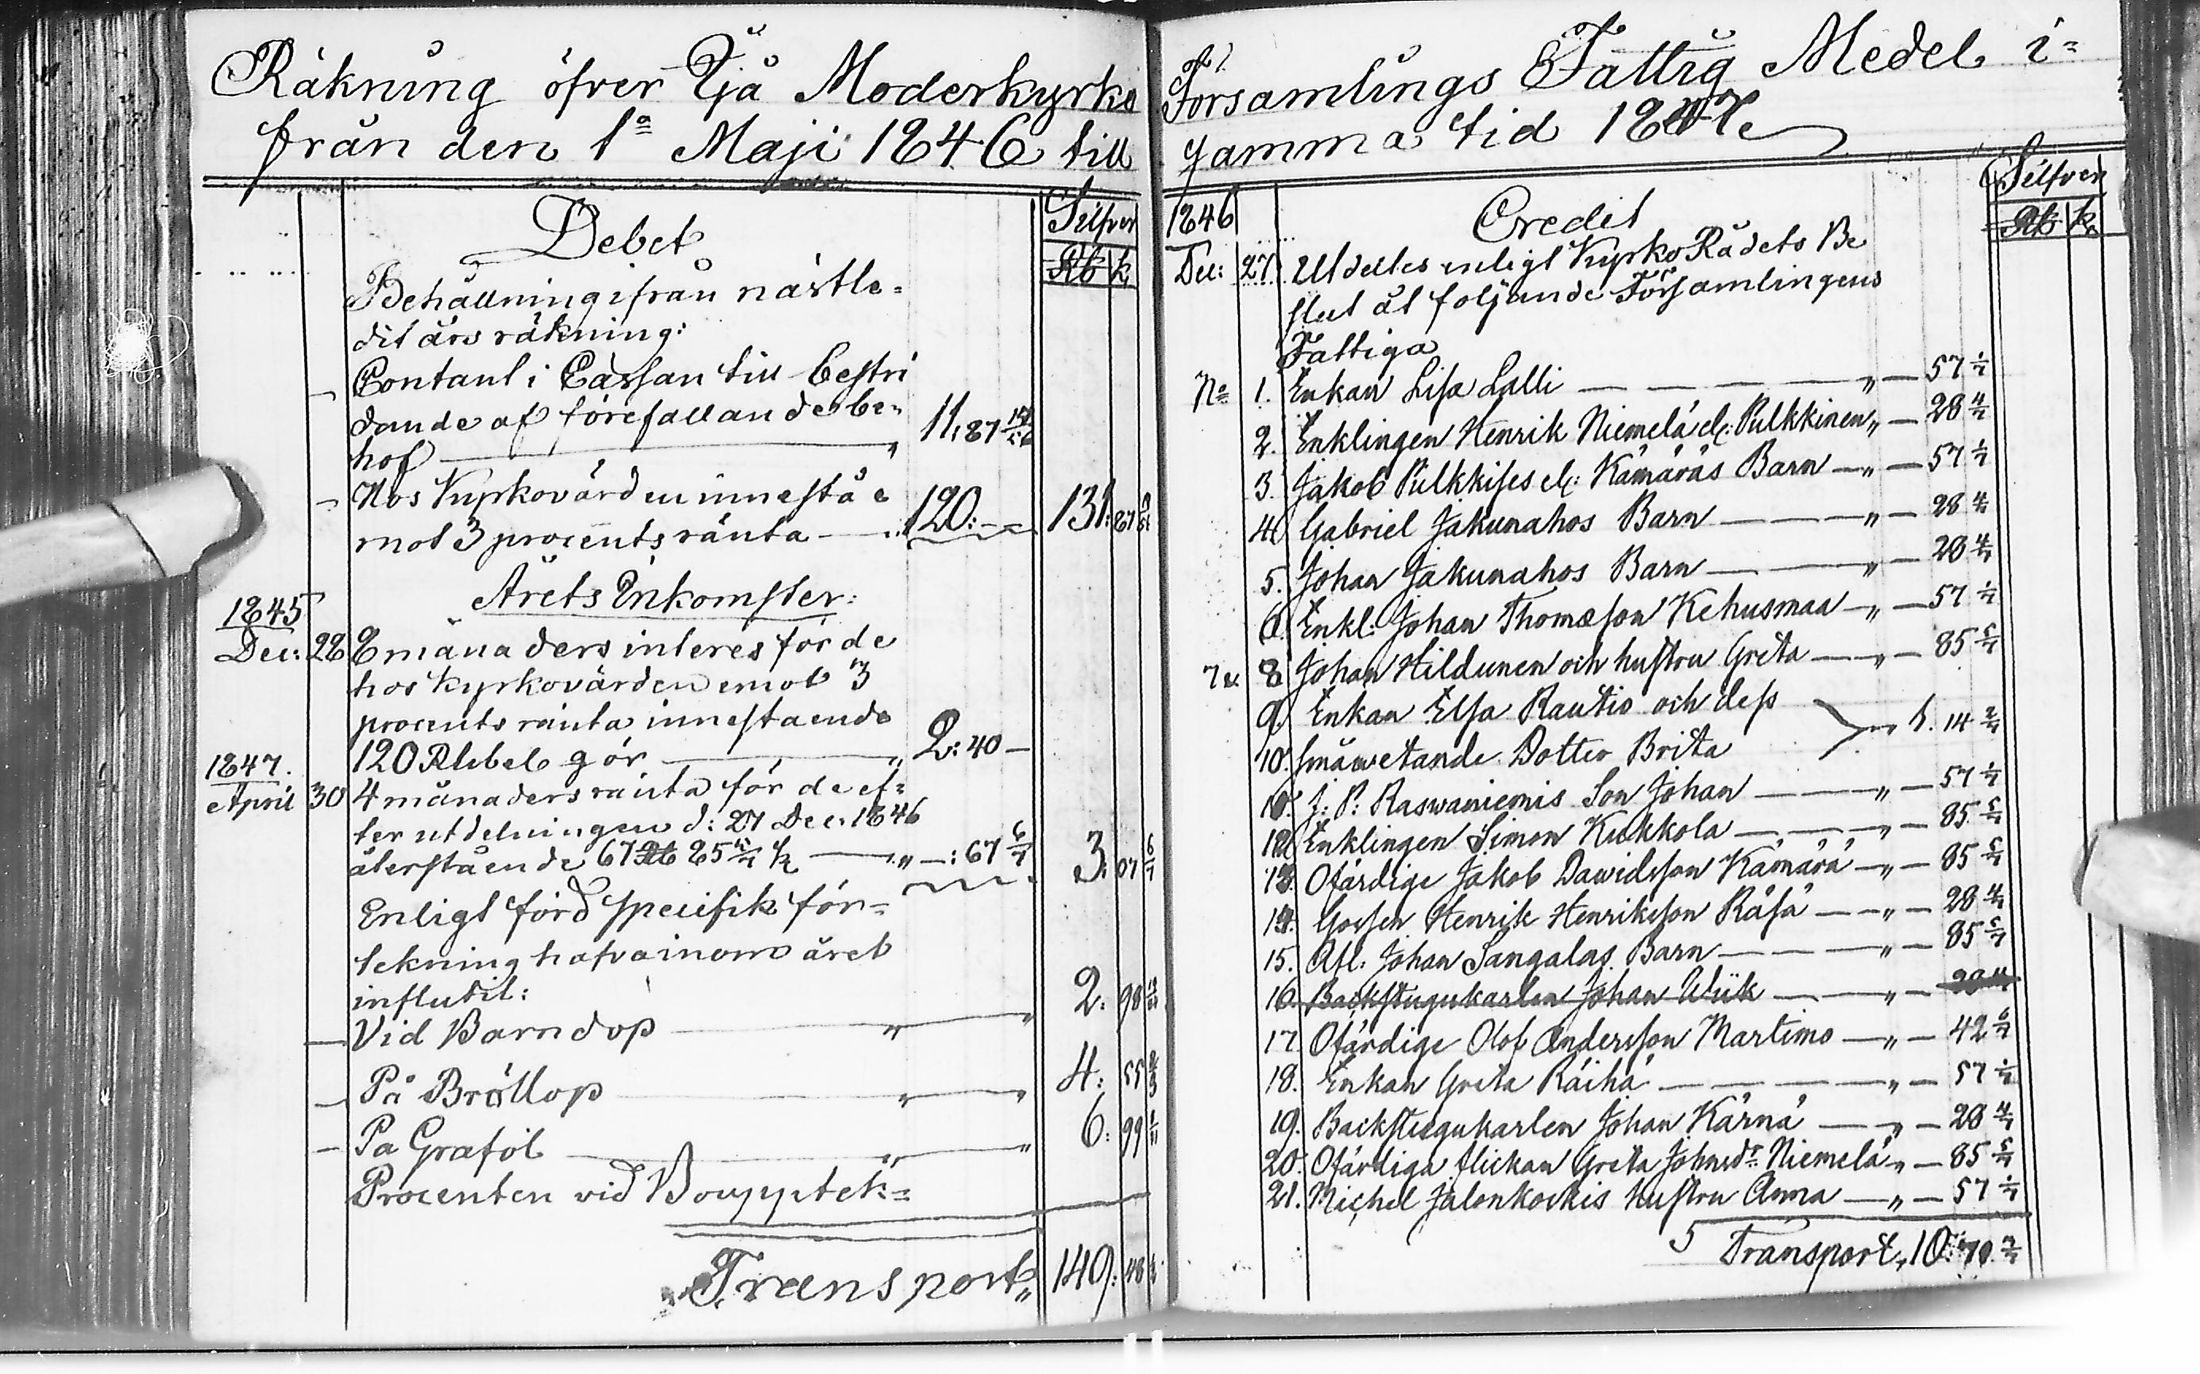 Räkning öfver Ijå Moderkyrko
från den 1ª Maji 1846 till
Debet
Silfver
Rb k
Behållning ifrån nästle=
dit års räkning:
Contant i Cassan till bestri
dande af förefallande be=
hof 11,87
Hos Kyrkovärden innestå e
mot 3 procents ränta 120:— 131: 87
Årets Inkomster:
1845
Dec: 28 8 månaders interes för de
hos Kyrkovärden emot 3
procents ränta innestaende
120 Rubel gör 2:40—
1847.
April 30 4 månaders ränta för de ef=
ter utdelningen d: 27 Dec: 1846
återstående 67 Rb 85 5/7 k „—:67 6/7 3: 07 6/7
Enligt förd specifik för=
tekning hafva inom året
influtit:
— Vid Barndop „ „ 2: 98
— På Bröllop „ „ 4: 55
— Pa Graföl „ „ 6: 99
Procenten vid Bouppteck=
Transport„ 149: 48
Församlings Fattig Medel i=
samma tid 1847
Silfver
Rb k
1846 Credit
Dec: 27. Utdeltes enligt Kyrko Rådets Be
slut åt foljande Församlingens
Fattiga
No 1. Enkan Lisa Lalli — — — „ — 57 1/7
2. Enklingen Henrik Niemelä el: Pulkkinen „ — 28 4/7
3. Jakob Pulkkises el: Kämäräs Barn — „ — 57 1/7
4. Gabriel Jakunahos Barn — — — „ — 28 4/7
5. Johan Jakunahos Barn — — „ — 28 4/7
6. Enkl: Johan Thomæson Kehusmaa — „ — 57 1/7
7 & 8 Johan Hildunen och hustru Greta — „ — 85 5/7
9. Enkan Elsa Rautio och dess
10. småwetande Dotter Brita „ 1. 14 2/7
J: P: Raswaniemis Son Johan — — „ — 57 1/7
12 Enklingen Simon Kukkola — — — „ — 85 5/7
13. Ofärdige Jakob Dawidsson Kämärä — „ — 85 5/7
14. Gossen Henrik Henriksson Räsä — — „ — 28 4/7
15. Afl: Johan Sangalas Barn — — — „ — 85 5/7
16. Backstugukarlen Johan Wiik — — „ — 28 4/7
17. Ofärdige Olof Andersson Martimo — „ — 42 6/7
18. Enkan Greta Räihä — — — — „ — 57 1/7
19. Backstugukarlen Johan Kärnä — „ — 28 4/7
20. Ofärdiga flickan Greta Johnsdr Niemelä „ — 85 5/7
21. Michel Jalonkoskis hustru Anna — „ — 57 1/7
Transport, 10: 70